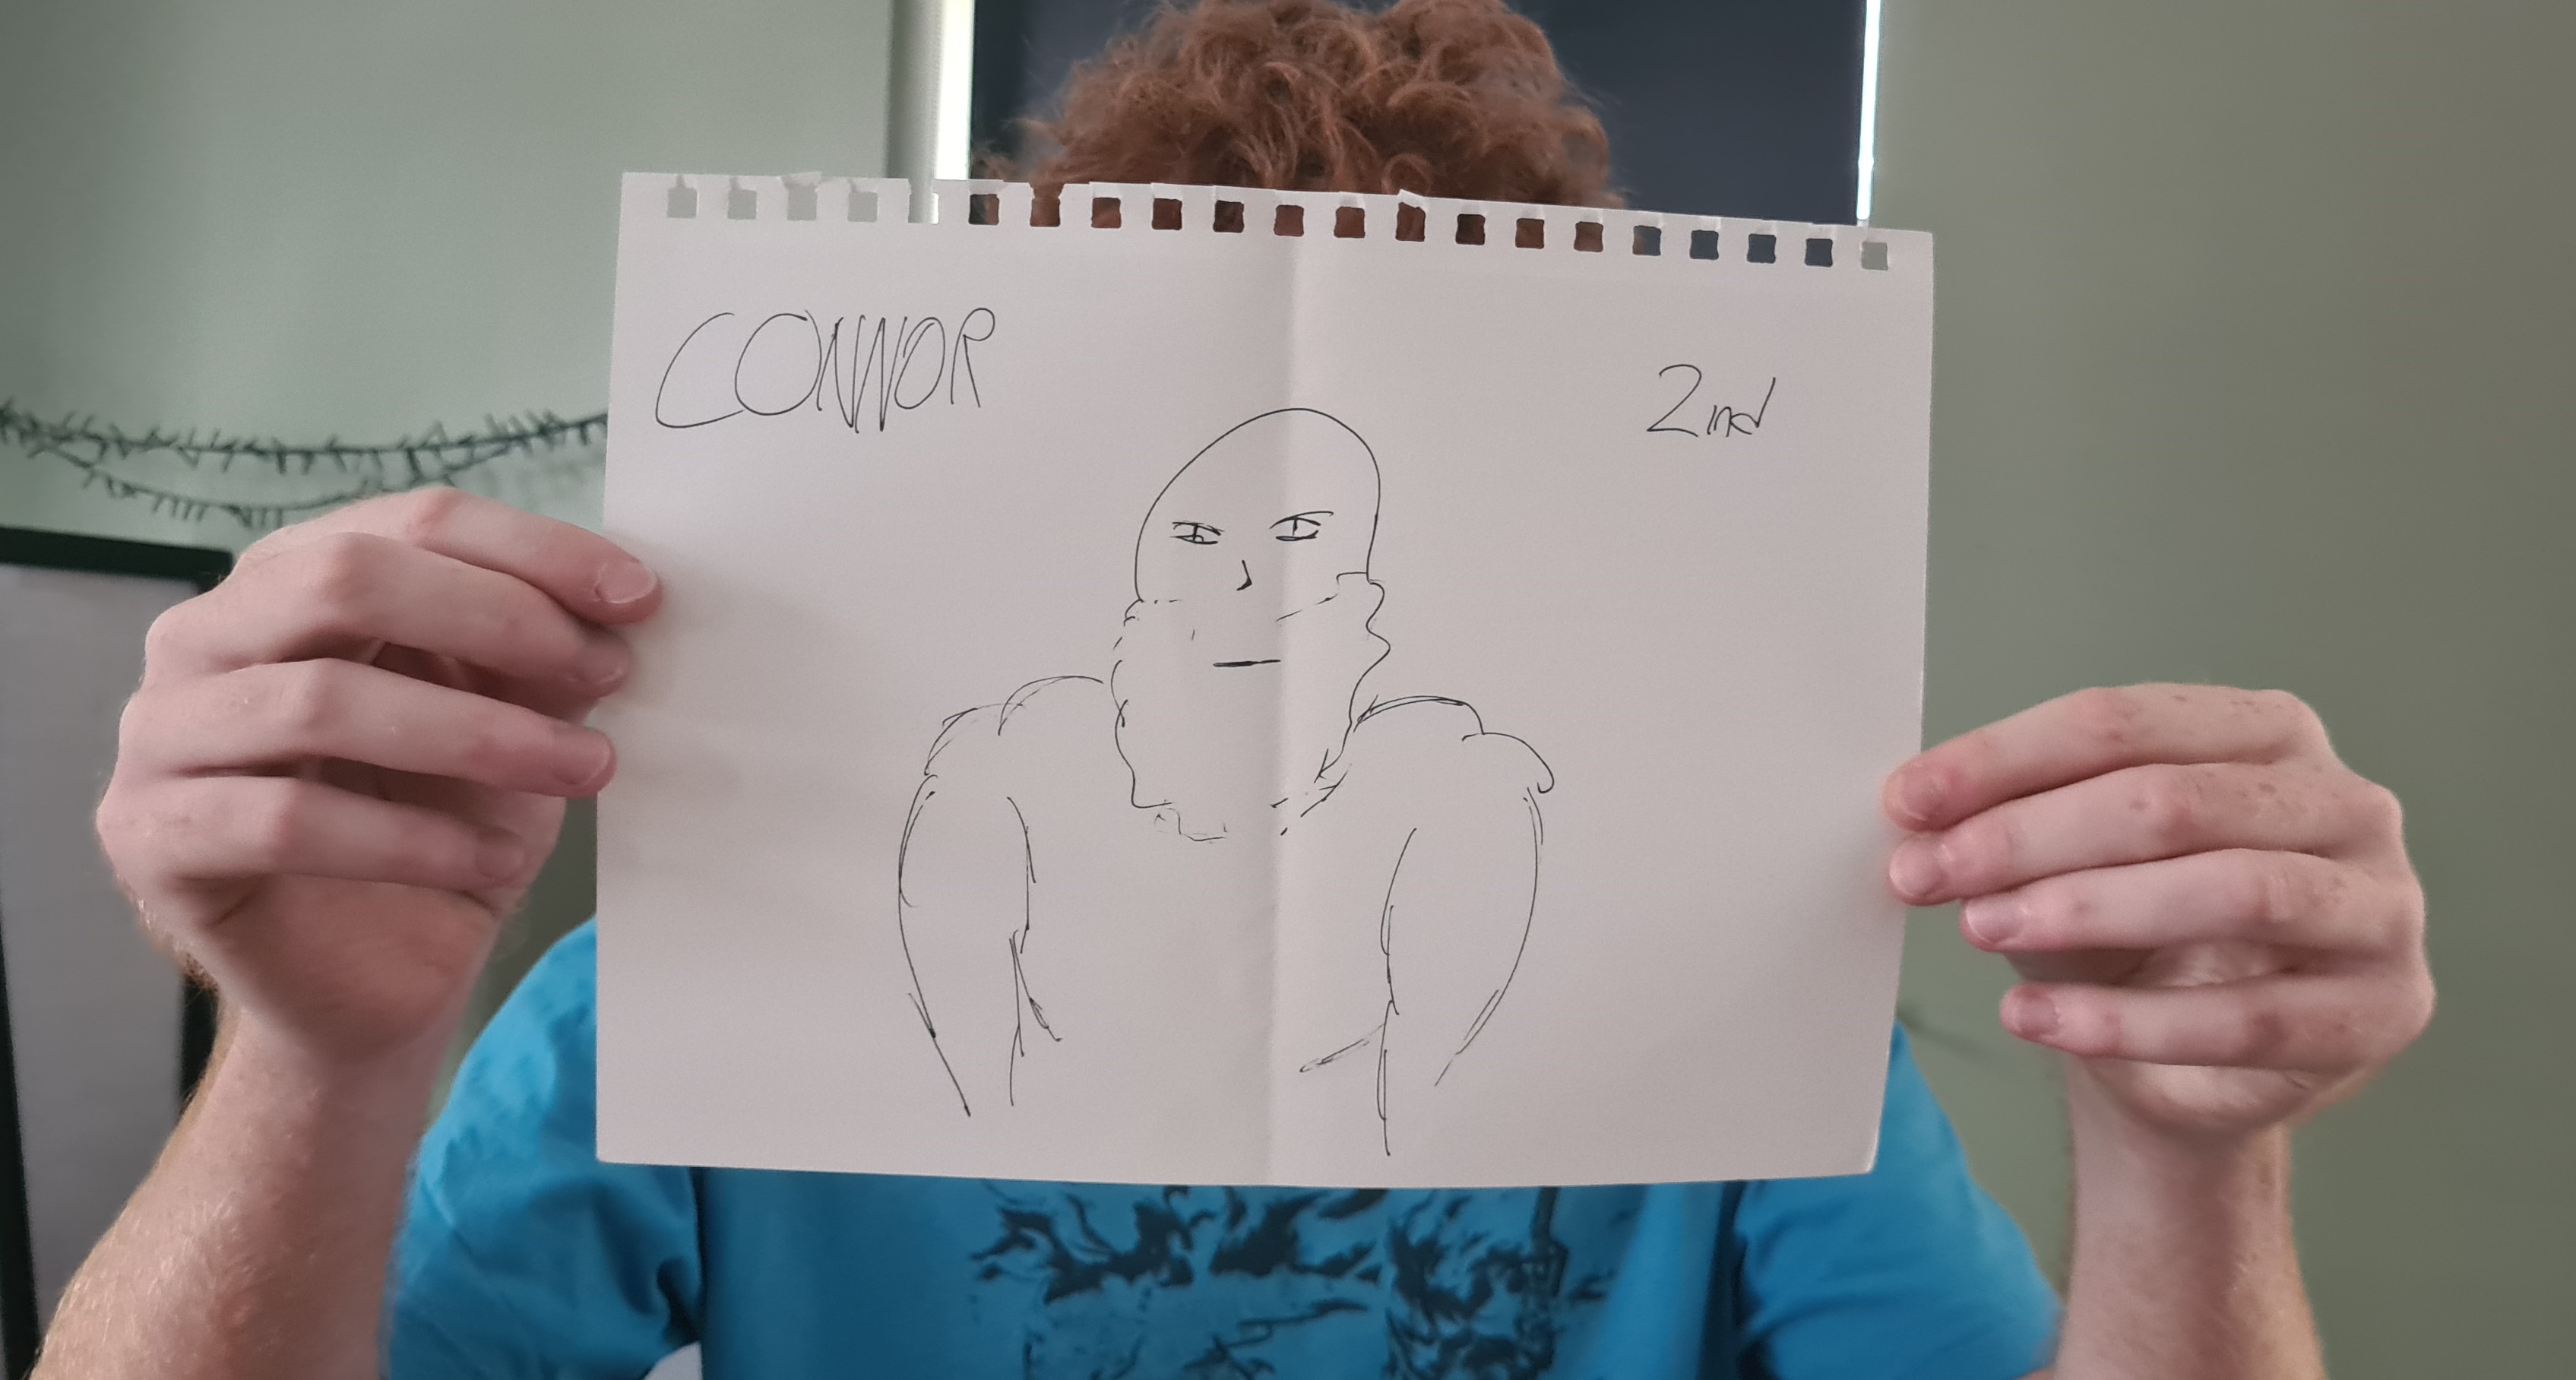 CONNOR
2nd